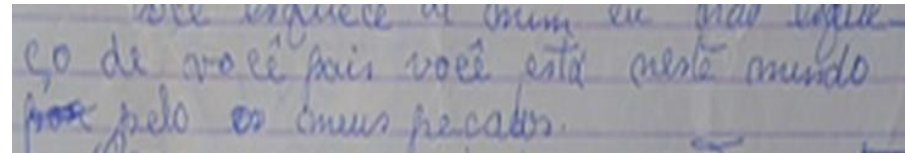 você esquece de mim eu não esque-
ço de você pois você está neste mundo
pelo os meus pecados.